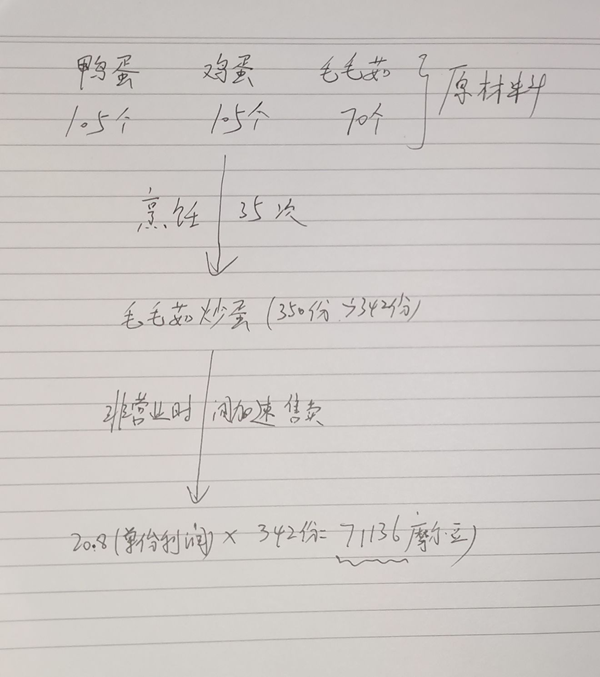 鸭蛋 鸡蛋 毛毛菇
105个 105个 70个
原材料
烹饪 35次
毛毛菇炒蛋 (350份>342份)
非营业时间加速售卖
20.8(单份利润) × 342份=71136摩尔豆)